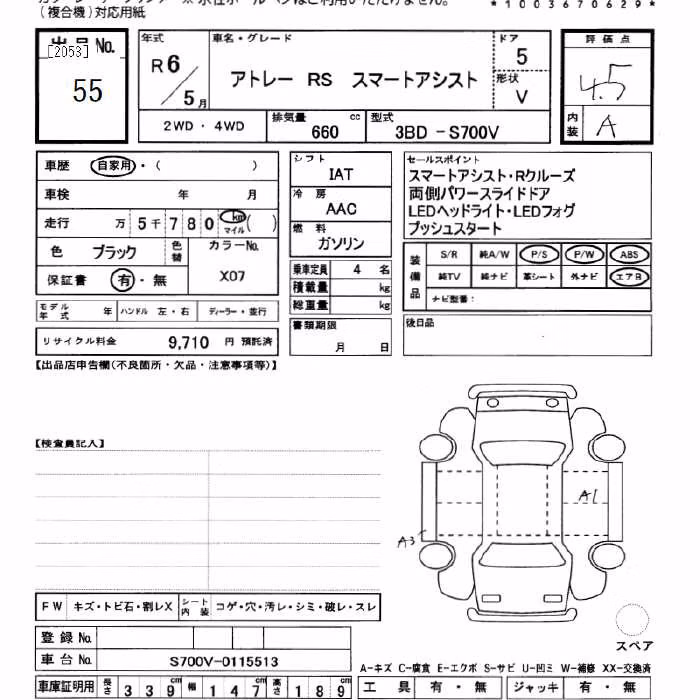 (複合機)対応用紙
*1003670629*
出品No.
[2053]
55
年式
R6/5月
車名・グレード
アトレー RS スマートアシスト
ドア
5
形状
V
評価点
4.5
内装
A
2WD・4WD
排気量
660 cc
型式
3BD-S700V
車歴 自家用・( )
車検 年 月
走行 万5千780 km マイル ( )
色 ブラック
色替
カラーNo.
X07
保証書 有・無
モデル年式 年
ハンドル 左・右
ディーラー・並行
リサイクル料金 9,710 円 預託済
シフト
IAT
冷房
AAC
燃料
ガソリン
乗車定員 4 名
積載量 kg
総重量 kg
書類期限
月 日
セールスポイント
スマートアシスト・Rクルーズ
両側パワースライドドア
LEDヘッドライト・LEDフォグ
プッシュスタート
装備品
S/R 純A/W P/S P/W ABS
純TV 純ナビ 革シート 外ナビ エアB
ナビ型番:
後日品
【出品店申告欄(不良箇所・欠品・注意事項等)】
【検査員記入】
A1
A3
FW キズ・トビ石・割レX
シート内装 コゲ・穴・汚レ・シミ・破レ・スレ
登録No.
車台No. S700V-0115513
スペア
A-キズ C-腐食 E-エクボ S-サビ U-凹ミ W-補修 XX-交換済
車庫証明用 長さ 339cm 幅 147cm 高さ 189cm
工具 有・無 ジャッキ 有・無